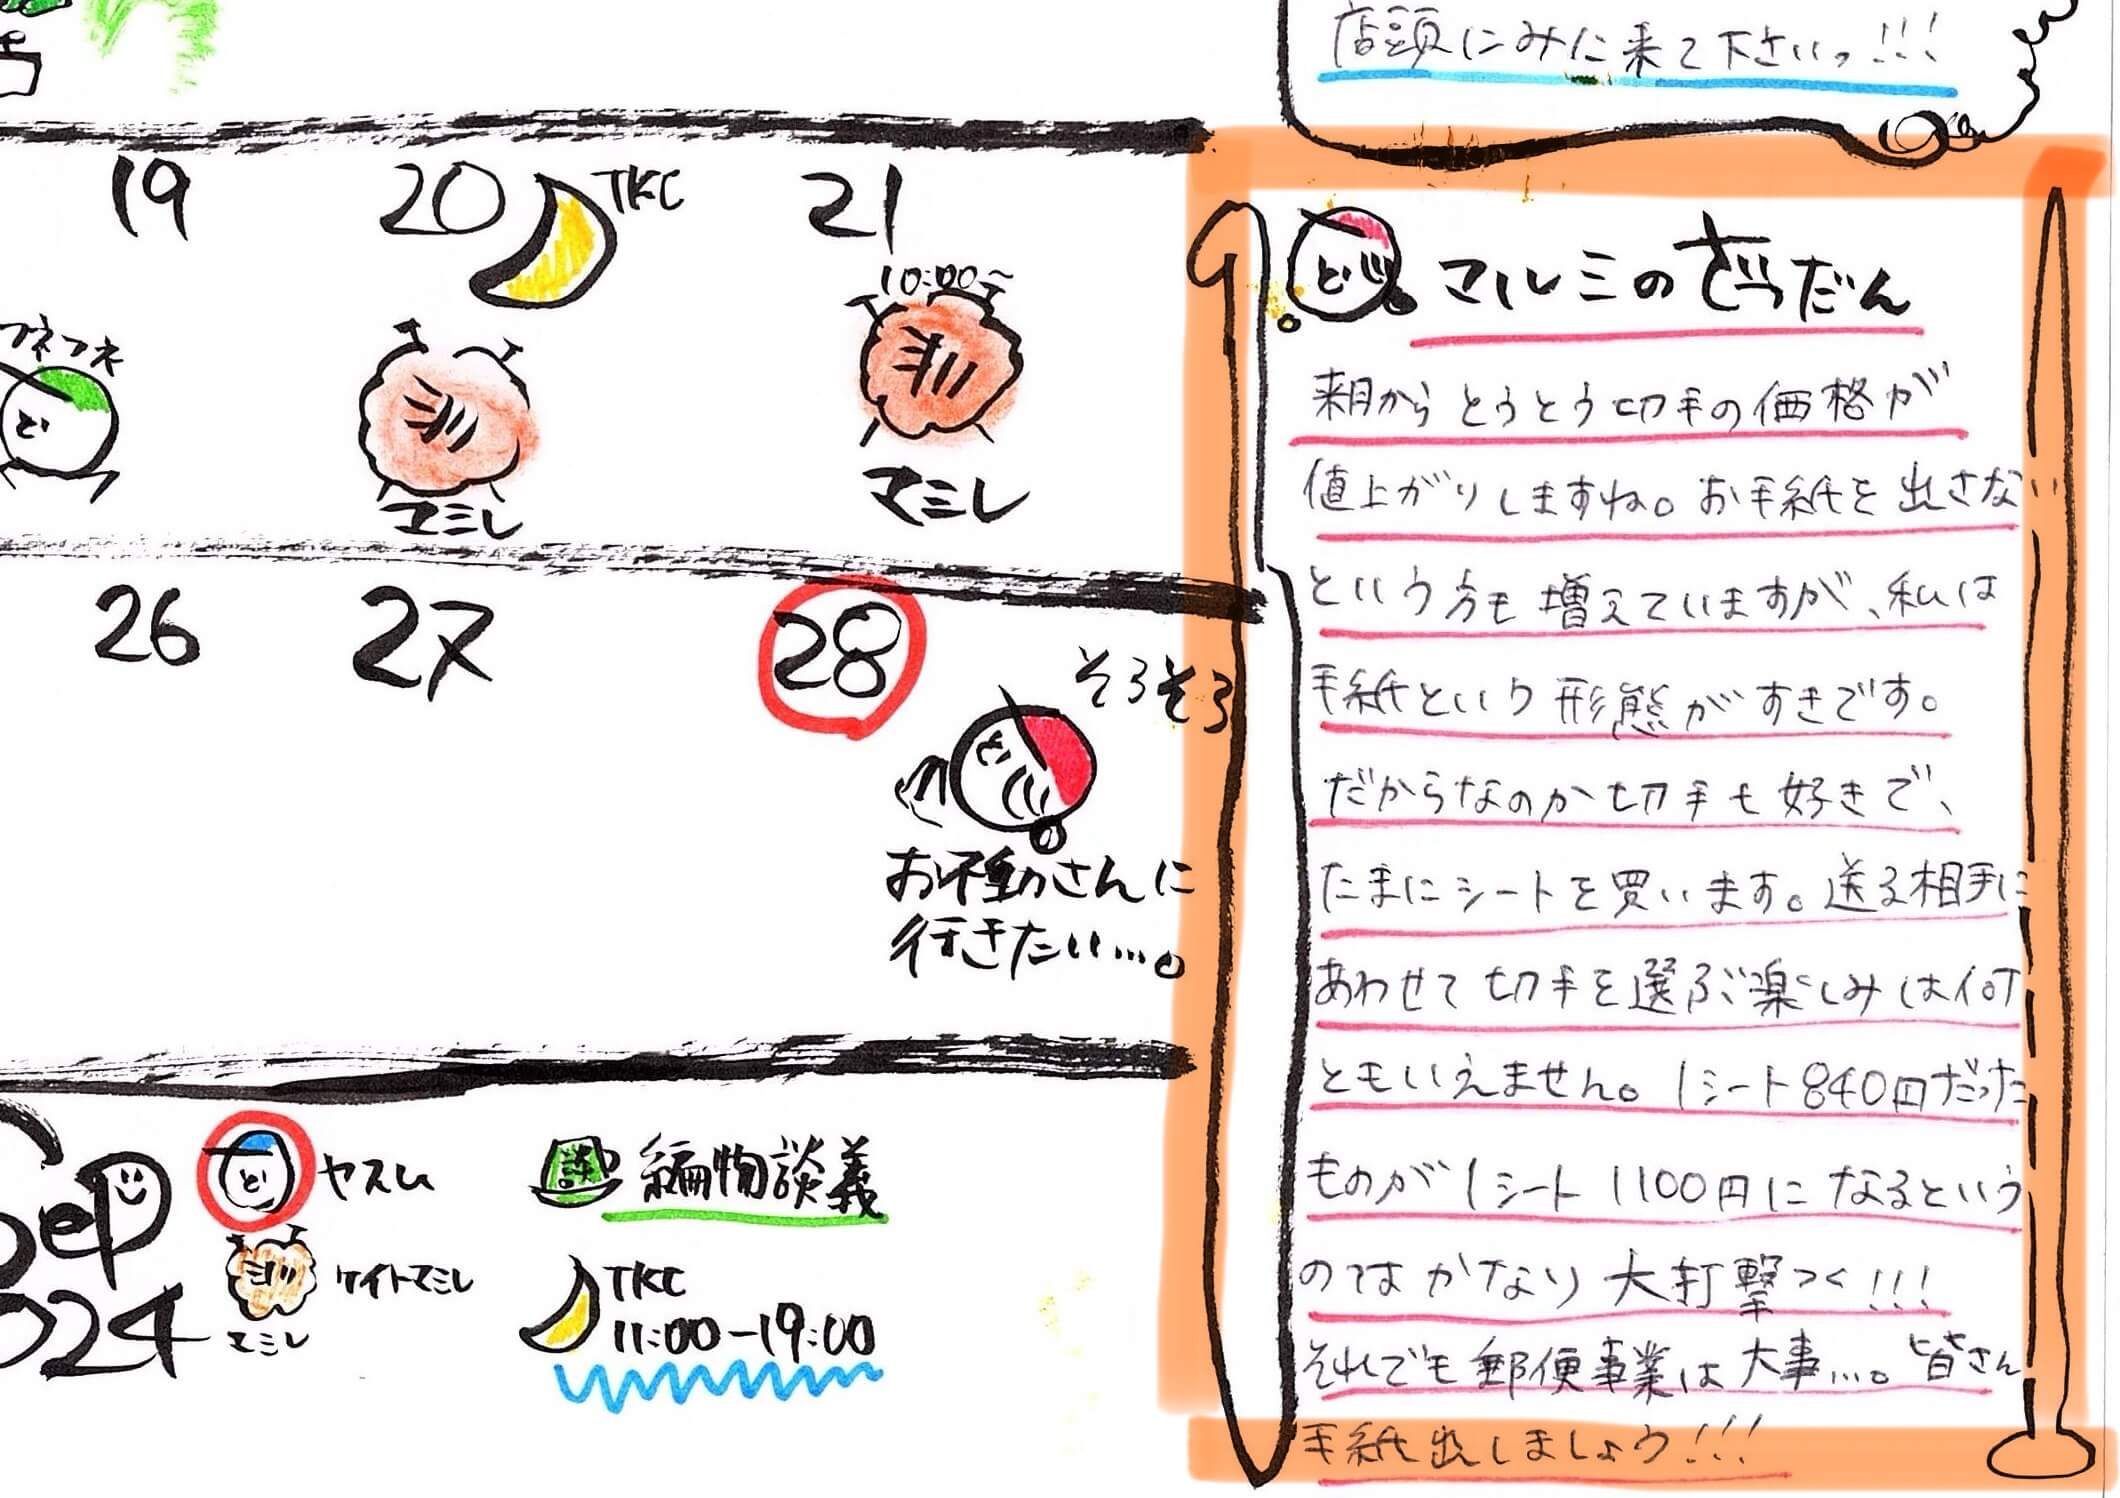 店頭にみに来て下さいっ!!!
19
20
TKC
21
10:00~
フネフネ
ど
マミレ
マミレ
26
27
28
そろそろ
ど
お不動さんに
行きたい…。
Sep
2024
ど
ヤスム
ケイトマミレ
マミレ
編物談義
TKC
11:00-19:00
ど
マルミのざつだん
来月からとうとう切手の価格が
値上がりしますね。お手紙を出さない
という方も増えていますが、私は
手紙という形態がすきです。
だからなのか切手も好きで、
たまにシートを買います。送る相手に
あわせて切手を選ぶ楽しみは何
ともいえません。1シート840円だった
ものが1シート1100円になるという
のはかなり大打撃っく!!!
それでも郵便事業は大事…。皆さん
手紙出しましょう!!!